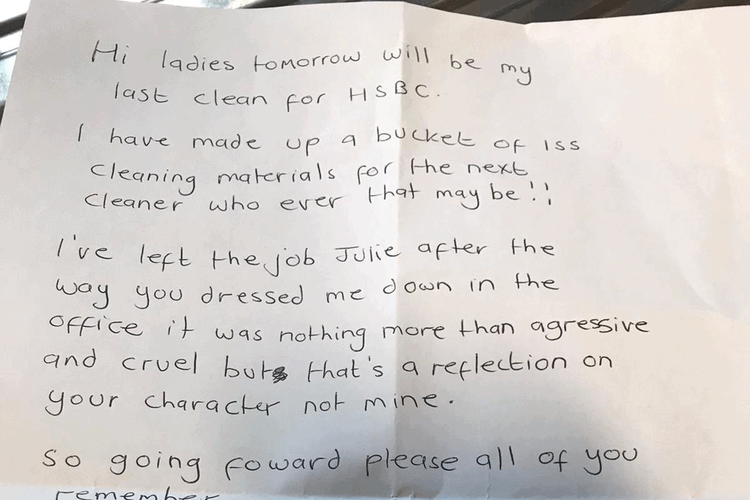 Hi ladies tomorrow will be my
last clean for HSBC.
I have made up a bucket of ISS
cleaning materials for the next
cleaner who ever that may be!!
I've left the job Julie after the
way you dressed me down in the
office it was nothing more than agressive
and cruel but that's a reflection on
your character not mine.
So going foward please all of you
remember